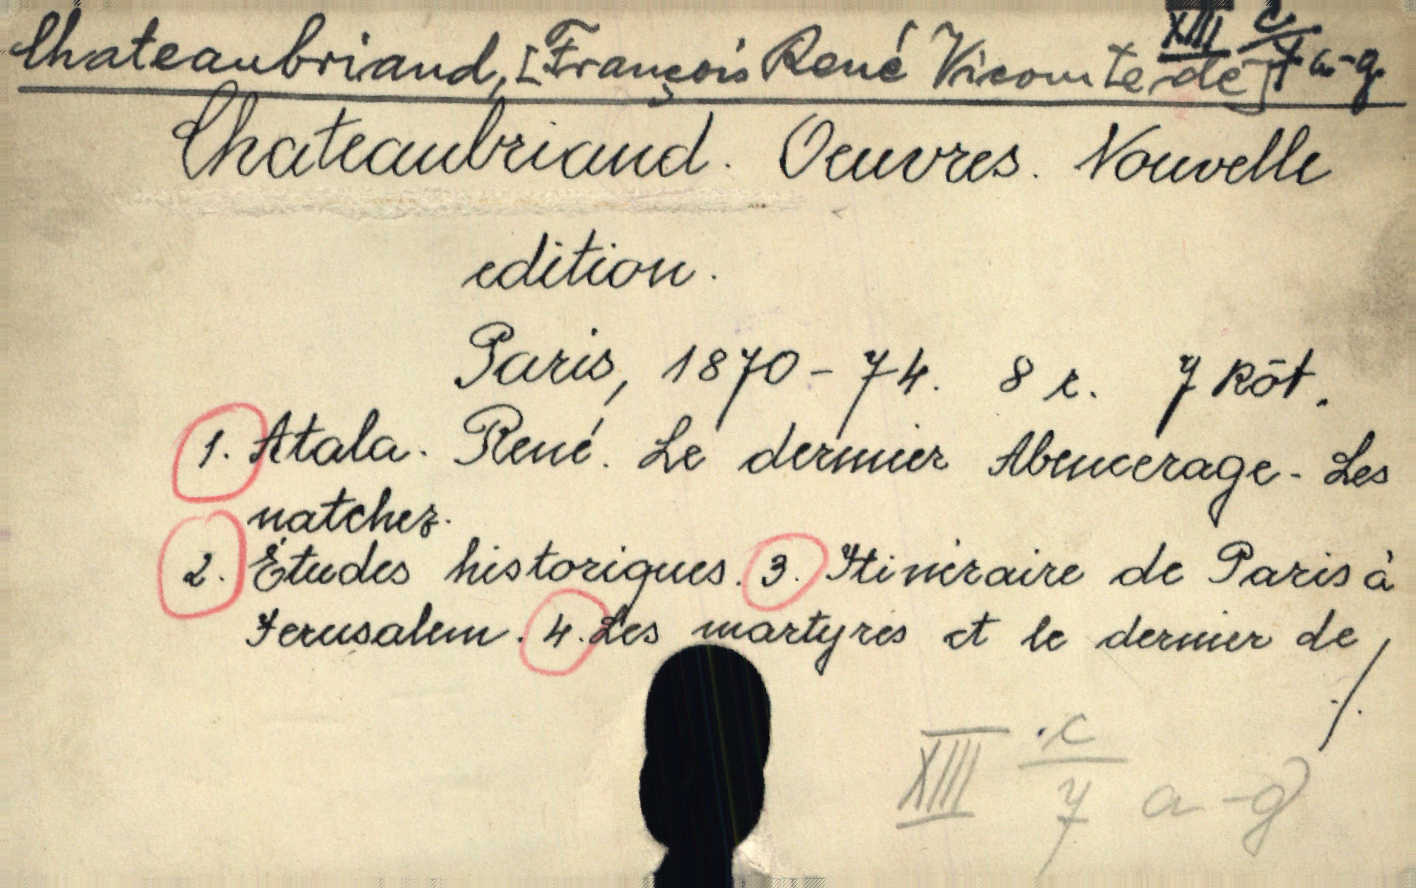 XIII c/7 a-g.
Chateaubriand, [François René Vicomte de]
Chateaubriand. Oeuvres. Nouvelle
edition.
Paris, 1870-74. 8 r. 7 köt.
1. Atala. René. Le dernier Abencerage. Les
natchez.
2. Études historiques. 3. Itinéraire de Paris à
Jerusalem. 4. Les martyres et le dernier de
./.
XIII c/7 a-g